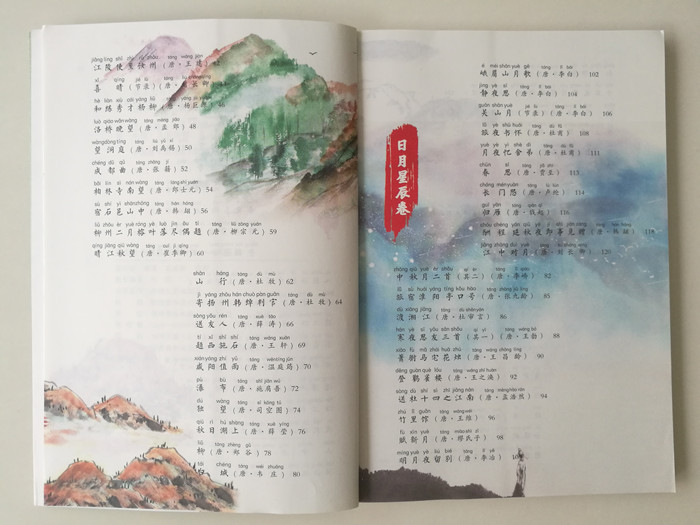 江陵使至汝州（唐·王建）
喜晴（节
和练秀才杨柳（唐·杨巨源）
洛桥晚望（唐·孟郊）48
望洞庭（唐·刘禹锡）50
成都曲（唐·张籍）52
柏林寺南望（唐·郎士元）54
宿石邑山中（唐·韩翃）56
柳州二月榕叶落尽偶题（唐·柳宗元）59
晴江秋望（唐·崔季卿）60
山行（唐·杜牧）62
寄扬州韩绰判官（唐·杜牧）64
送友人（唐·薛涛）66
题西施石（唐·王轩）69
咸阳值雨（唐·温庭筠）70
瀑布（唐·施肩吾）72
独望（唐·司空图）74
秋日湖上（唐·薛莹）76
柳（唐·郑谷）78
台城（唐·韦庄）80
日月星辰卷
中秋月二首（其二）（唐·李峤）82
旅宿淮阳亭口号（唐·张九龄）85
渡湘江（唐·杜审言）86
寒夜思友三首（其一）（唐·王勃）88
萧驸马宅花烛（唐·王昌龄）90
登鹳雀楼（唐·王之涣）92
送杜十四之江南（唐·孟浩然）94
竹里馆（唐·王维）96
赋新月（唐·缪氏子）98
明月夜留别（唐·李冶）
峨眉山月歌（唐·李白）102
静夜思（唐·李白）104
关山月（节录）（唐·李白）106
旅夜书怀（唐·杜甫）108
月夜忆舍弟（唐·杜甫）111
春思（唐·贾至）113
长门怨（唐·卢纶）114
归雁（唐·钱起）116
酬程延秋夜即事见赠（唐·韩翃）118
江中对月（唐·刘长卿）120